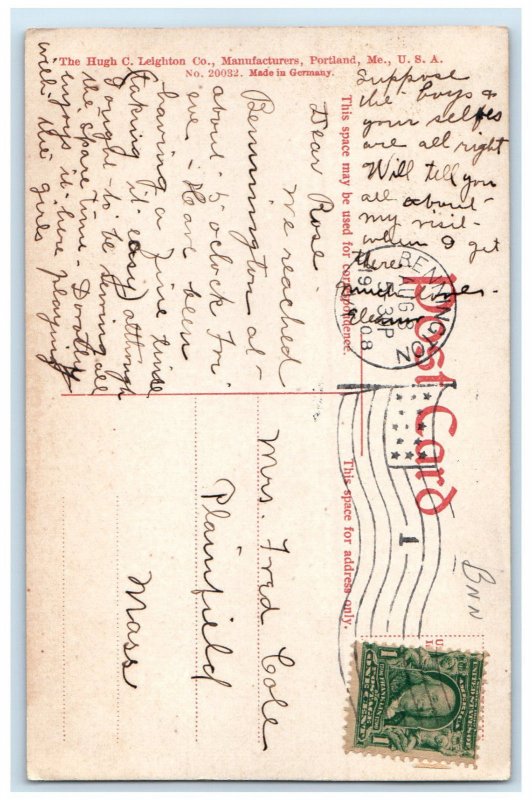 The Hugh C. Leighton Co., Manufacturers, Portland, Me., U. S. A.
No. 20032. Made in Germany.
Post Card
This space may be used for correspondence.
This space for address only.
Dear Rose-
We reached
Bennington at-
about- 5 o'clock Fri
eve - Have been
having a fine time
taking it easy although
ought- to be sewing all
the spare time - Dorothy
enjoys it- here playing
with the girls
Suppose
the boys &
your selfes
are all right
Will tell you
all about-
my visit-
when I get
there.
much love-
Eleanor
BENNINGTON
AUG 8
3 P
1908
1
Mrs. Fred Cole
Plainfield
Mass
BNN